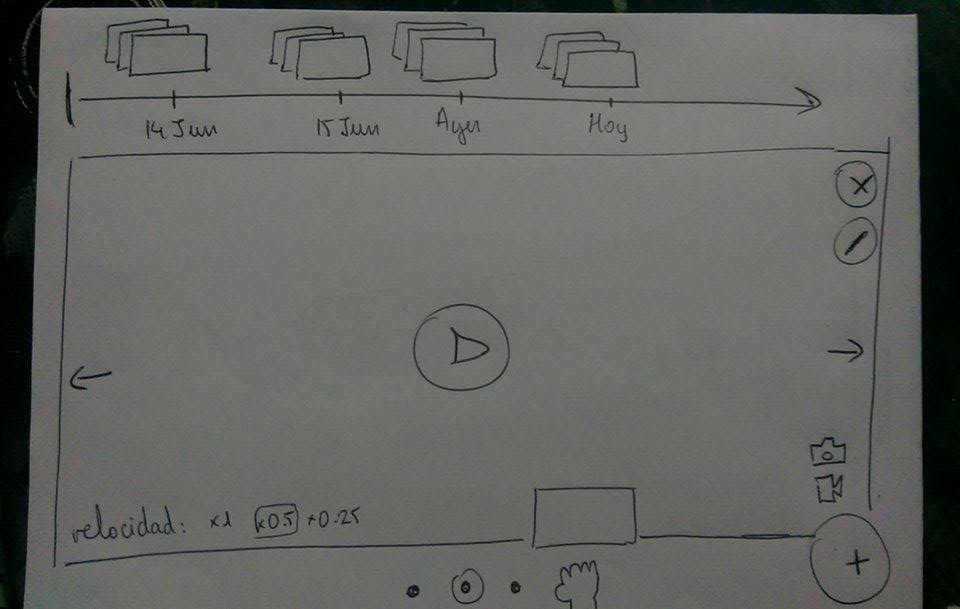 14 Jun 15 Jun Ayer Hoy
velocidad: x1 x0.5 x0.25